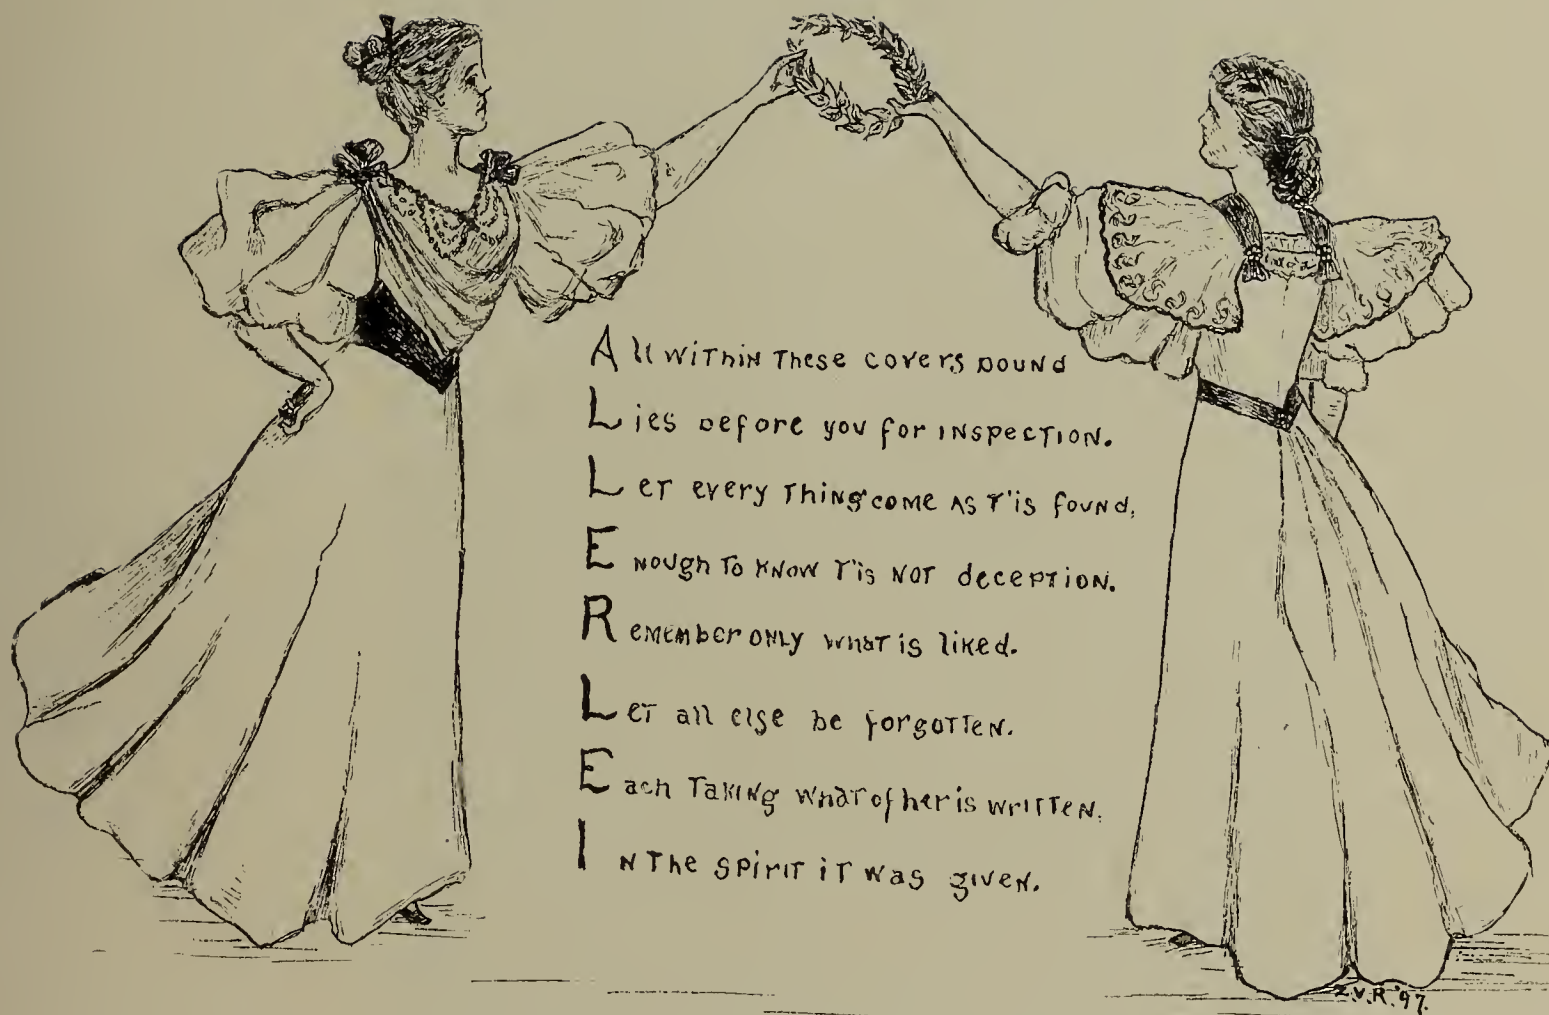 All within these covers bound
Lies before you for inspection.
Let every thing come as t'is found,
Enough to know t'is not deception.
Remember only what is liked.
Let all else be forgotten.
Each taking what of her is written,
In the spirit it was given.
Z.V.R.'97.